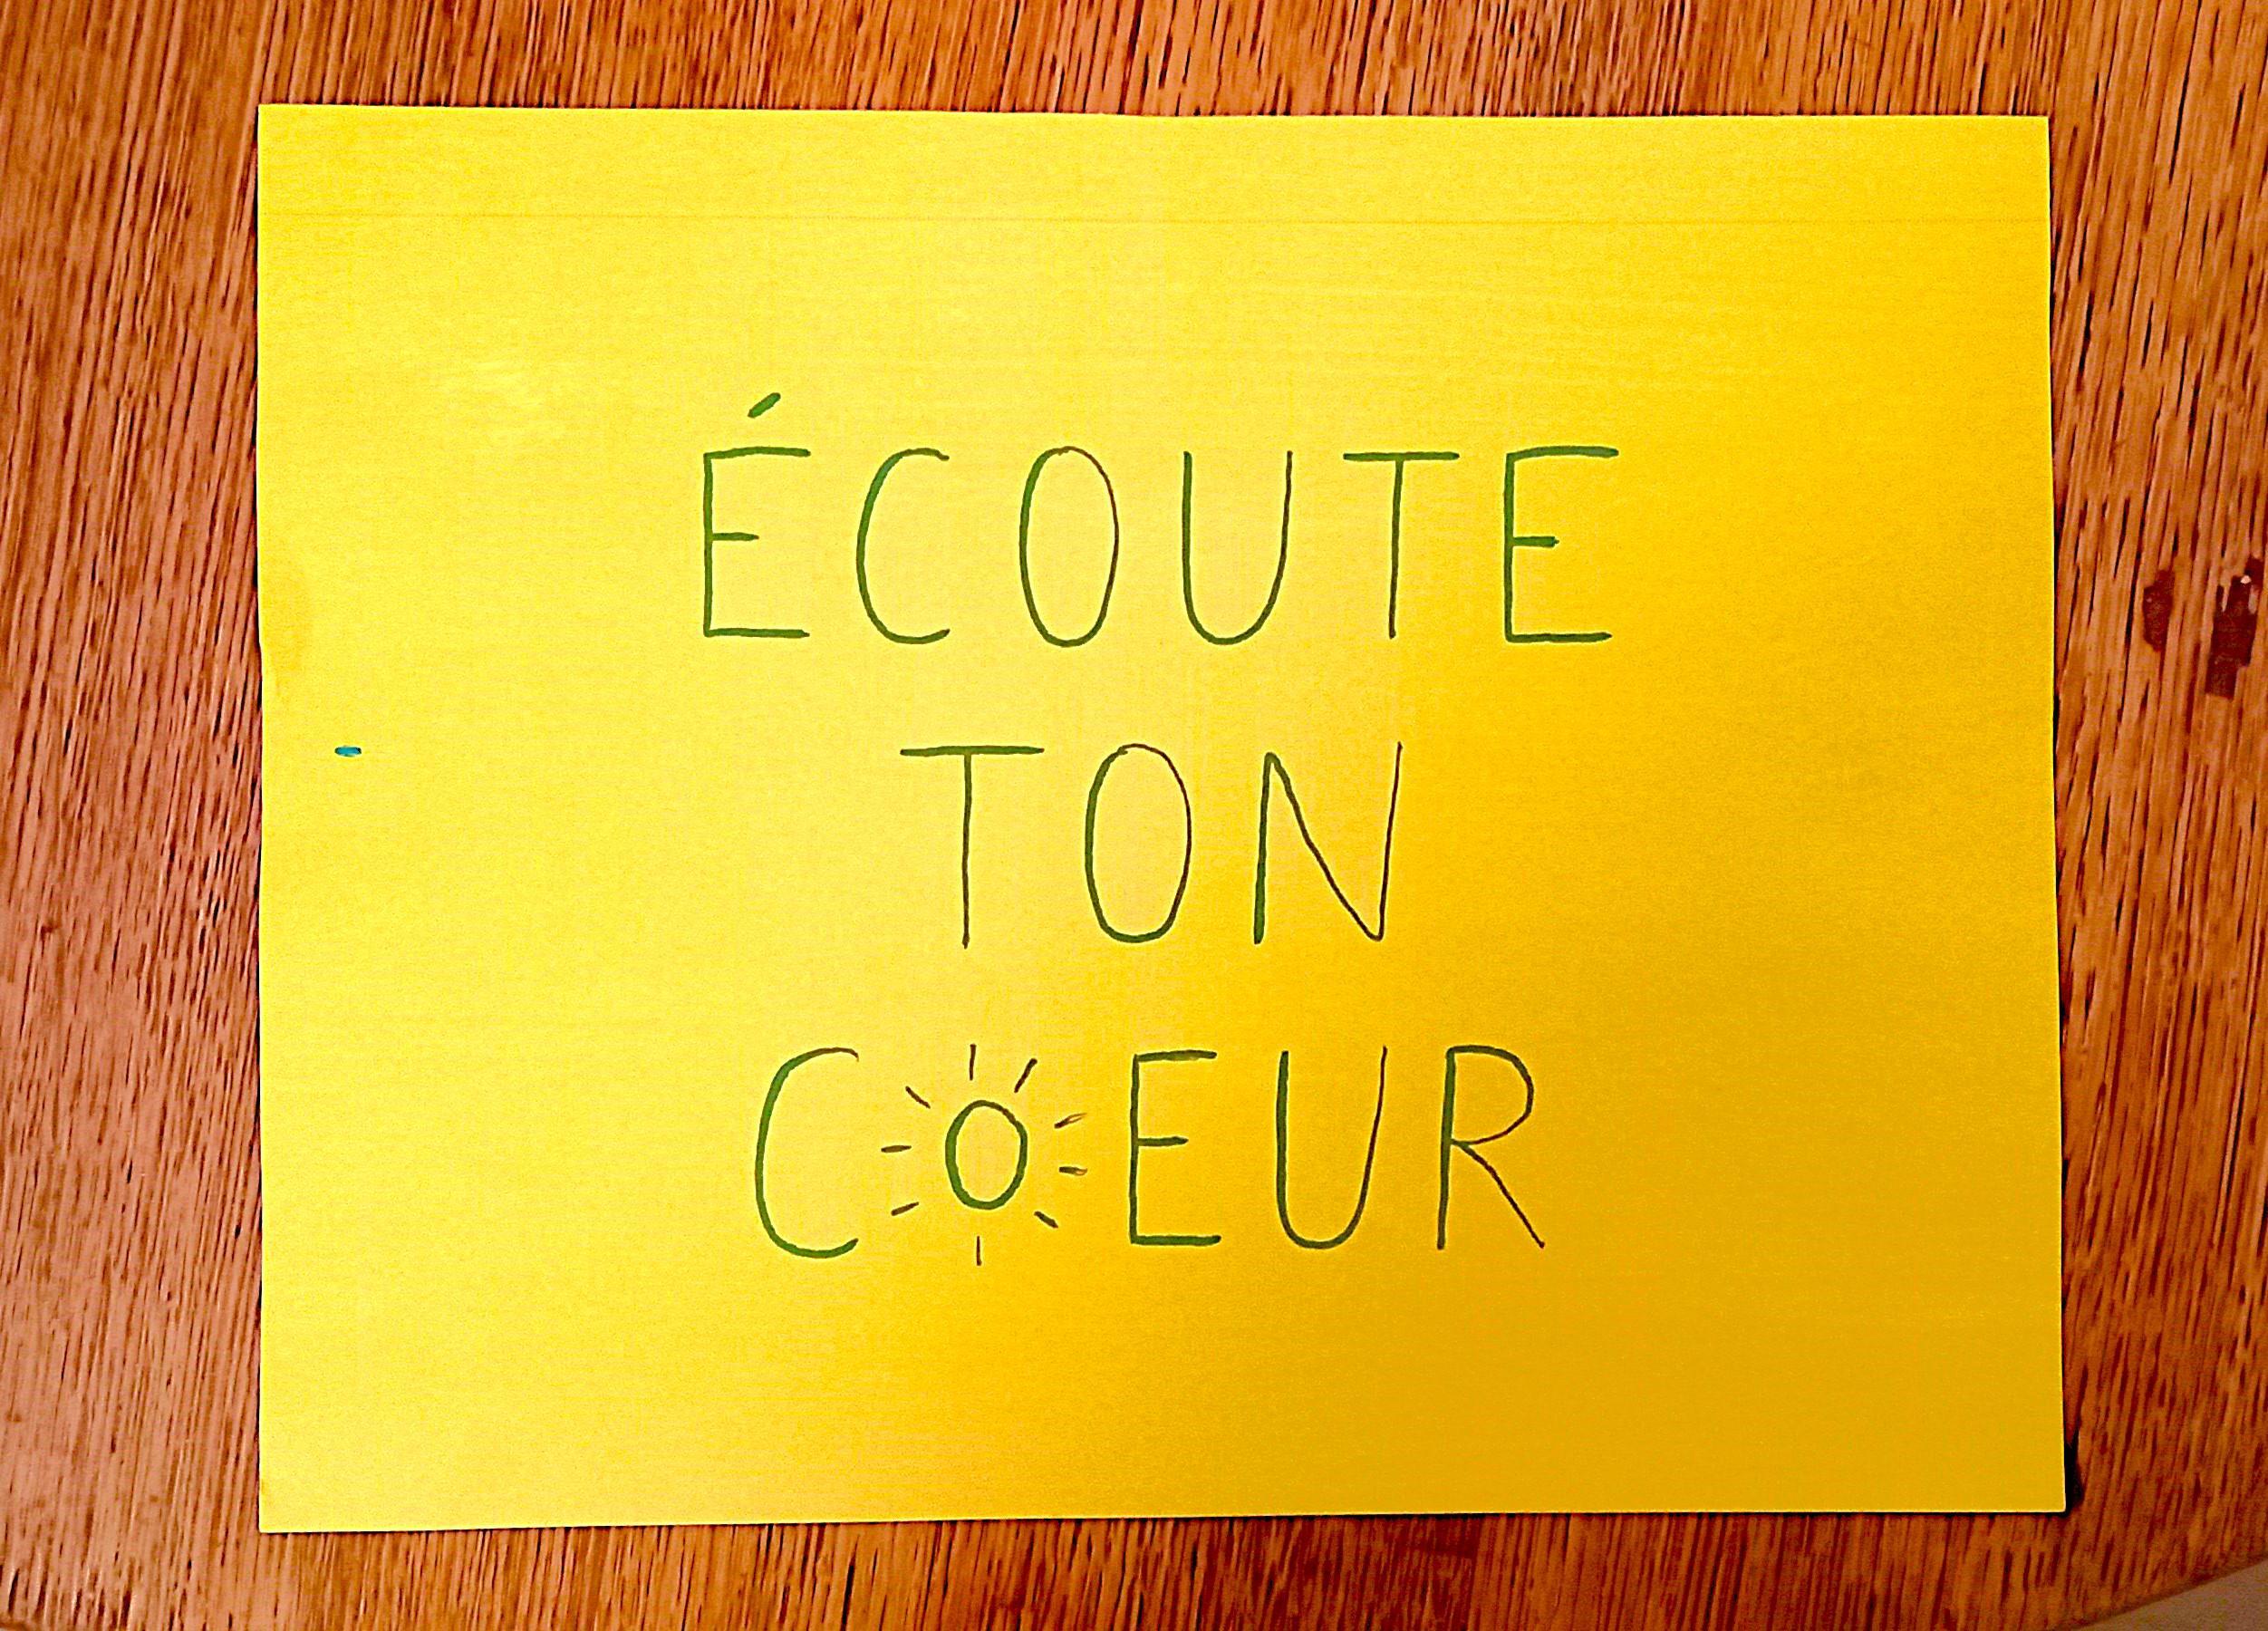 ÉCOUTE
TON
COEUR